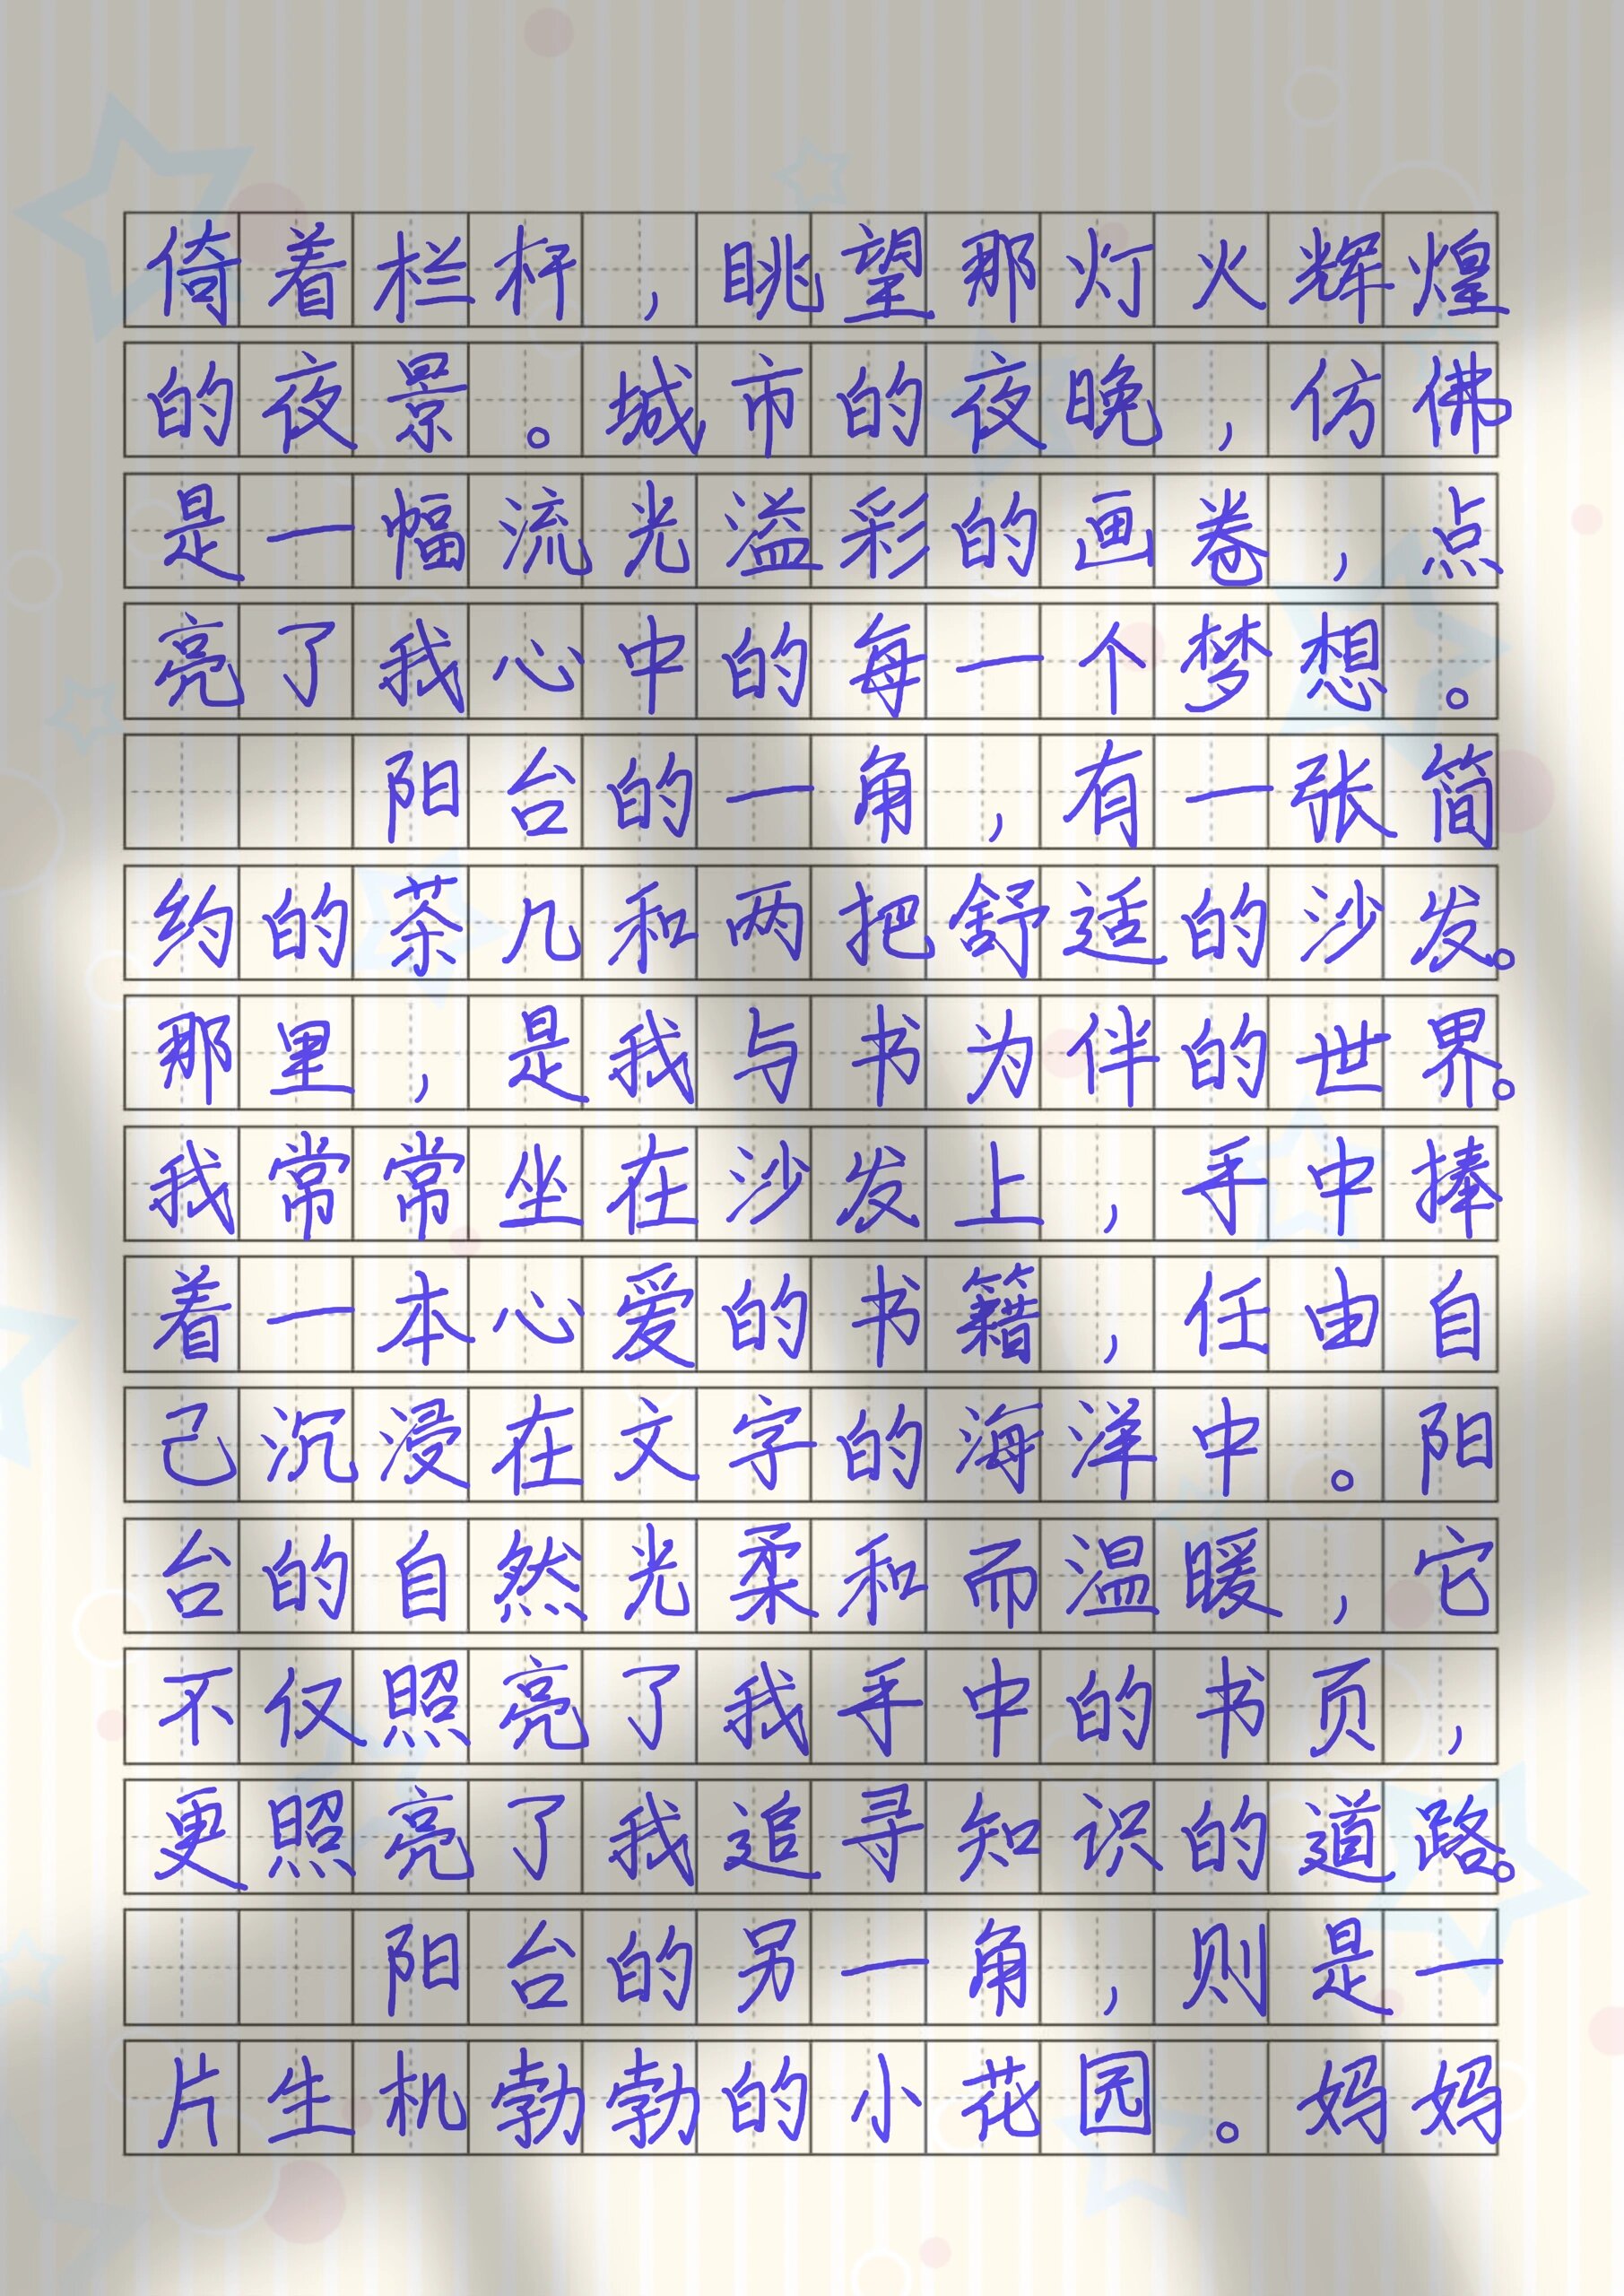 倚着栏杆，眺望那灯火辉煌
的夜景。城市的夜晚，仿佛
是一幅流光溢彩的画卷，点
亮了我心中的每一个梦想。
阳台的一角，有一张简
约的茶几和两把舒适的沙发。
那里，是我与书为伴的世界。
我常常坐在沙发上，手中捧
着一本心爱的书籍，任由自
己沉浸在文字的海洋中。阳
台的自然光柔和而温暖，它
不仅照亮了我手中的书页，
更照亮了我追寻知识的道路。
阳台的另一角，则是一
片生机勃勃的小花园。妈妈